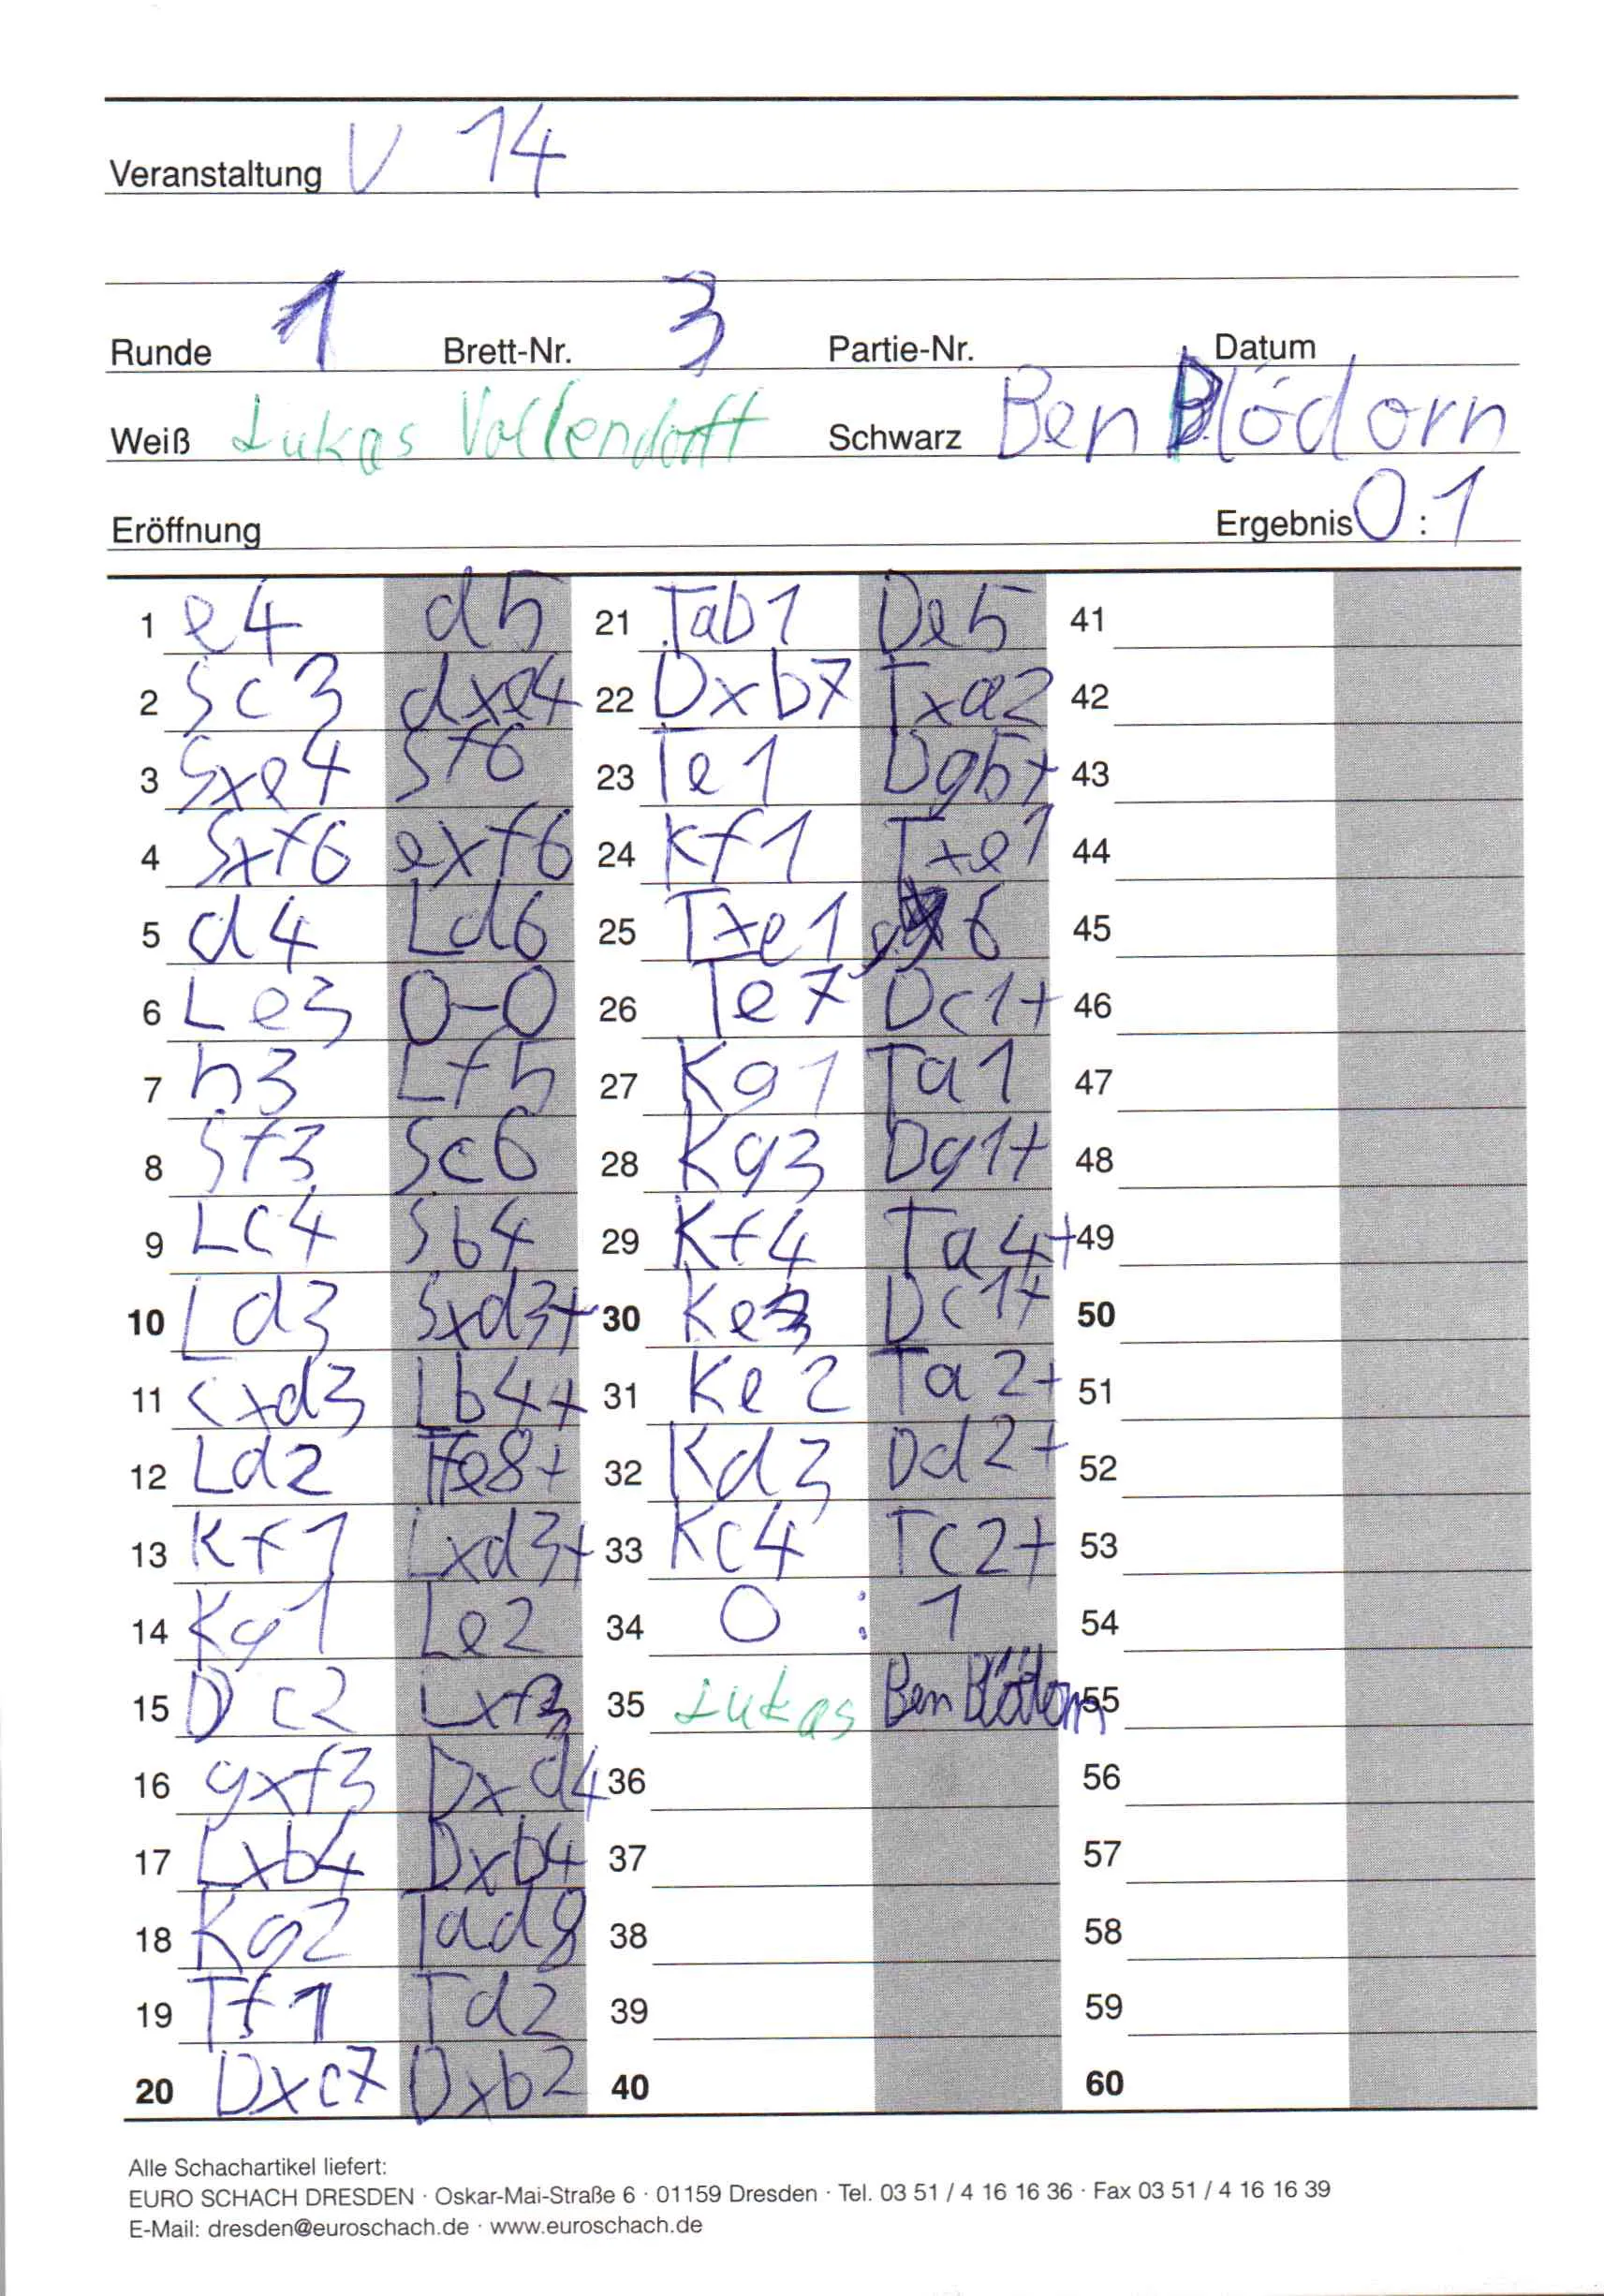 Veranstaltung U 14
Runde 1 Brett-Nr. 3 Partie-Nr. Datum
Weiß Lukas Vollendorff Schwarz Ben Blödorn
Eröffnung Ergebnis 0 : 1
1 e4 d5 21 Tab1 De5 41
2 Sc3 dxe4 22 Dxb7 Txa2 42
3 Sxe4 Sf6 23 Te1 Dg5+ 43
4 Sxf6 exf6 24 Kf1 Txe1 44
5 d4 Ld6 25 Txe1 g6 45
6 Le3 0-0 26 Te7 Dc1+ 46
7 h3 Lf5 27 Kg1 Ta1 47
8 Sf3 Sc6 28 Kg3 Dg1+ 48
9 Lc4 Sb4 29 Kf4 Ta4+ 49
10 Ld3 Sxd3+ 30 Ke3 Dc1+ 50
11 cxd3 Lb4+ 31 Ke2 Ta2+ 51
12 Ld2 Tfe8+ 32 Kd3 Dd2+ 52
13 Kf1 Lxd3+ 33 Kc4 Tc2+ 53
14 Kg1 Le2 34 0 : 1 54
15 Dc2 Lxf3 35 Lukas Ben Blödorn 55
16 gxf3 Dxd4 36 56
17 Lxb4 Dxb4 37 57
18 Kg2 Tad8 38 58
19 Tf1 Td2 39 59
20 Dxc7 Dxb2 40 60
Alle Schachartikel liefert:
EURO SCHACH DRESDEN · Oskar-Mai-Straße 6 · 01159 Dresden · Tel. 03 51 / 4 16 16 36 · Fax 03 51 / 4 16 16 39
E-Mail: dresden@euroschach.de · www.euroschach.de